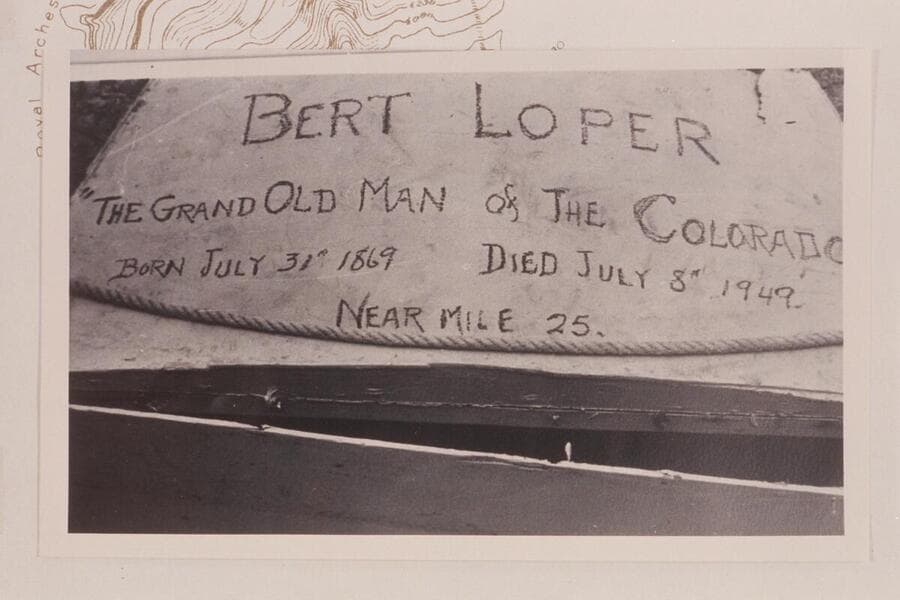 Royal Arches
BERT LOPER
"THE GRAND OLD MAN of THE COLORADO
BORN JULY 31st 1869 DIED JULY 8th 1949.
NEAR MILE 25.